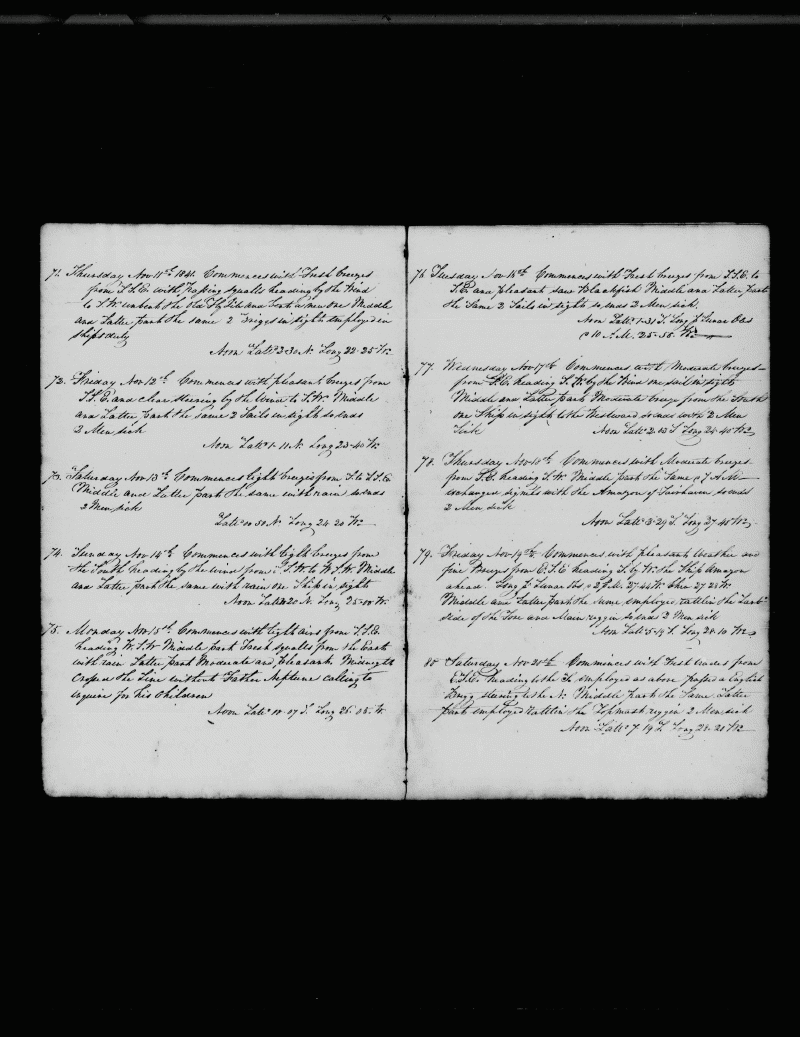 71. Thursday Nov 11th 1841. Commences with Fresh breezes
from S.S.E. with passing squalls heading by the Wind
to S.W. unbent the old Fly Jib and bent a new one Middle
and Latter part the same 2 Brigs in sight employed in
Ships duty
Noon Latt. 3-30 N. Long 22-25 W.
72. Friday Nov 12th Commences with pleasant breezes from
S.S.E. and clear steering by the Wind to S.W. Middle
and Latter part the same 2 Sails in sight so ends
2 Men sick
Noon Latt. 1-11 N. Long 23-40 W.
73. Saturday Nov 13th Commences light breezes from S. to S.S.E.
Middle and Latter part the same with rain so ends
2 Men sick
Latt. 00 50 N. Long 24 20 W.
74. Sunday Nov 14th Commences with light breezes from
the South heading by the wind from S.W. to W.S.W. Middle
and Latter part the same with rain one Ship in sight
Noon Latt. 20 N. Long 25-00 W.
75. Monday Nov 15th. Commences with light airs from S.S.E.
heading W.S.W. Middle part Fresh squalls from the East
with rain Latter part Moderate and pleasant Midnight
Crossed the Line without Father Neptune calling to
enquire for his Children
Noon Latt. 00-07 S. Long 25-05 W.
76 Tuesday Nov 16th Commences with Fresh breezes from S.S.E. to
S.E. and pleasant saw Blackfish Middle and Latter part
the Same 2 Sails in sight so ends 2 Men sick.
Noon Latt. 1-31 S. Long Lunar Obs
10 A.M. 25-58 W.
77. Wednesday Nov 17th Commences with Moderate breezes
from S.E. heading S.W. by the Wind one sail in sight
Middle and Latter part Moderate breeze from the South
one Ship in sight to the Westward so ends with 2 Men
Sick Noon Latt. 2-03 S Long 26-40 W
78. Thursday Nov 18th. Commences with Moderate breezes
from S.E. heading S.W. Middle part the Same 7 A.M.
exchanged signals with the Amazon of Fairhaven so ends
2 Men sick
Noon Latt. 3-29 S. Long 27 45 W
79. Friday Nov 19th Commences with pleasant Weather and
fine Breezes from E.S.E. heading S. by W. the Ship Amazon
ahead. Long Lunar Obs. 2 P.M. 27-44 W. Chro 27 28 W.
Middle and Latter part the same employed rattlin the Larb
side of the Fore and Main riggin so ends 2 Men sick
Noon Latt. 5-14 S. Long 28-10 W
80 Saturday Nov 20th. Commences with Fresh breezes from
E.S.E. heading to the S. employed as above passed a English
Brigg steering to the N. Middle part the Same Latter
part employed rattlin the Topmast riggin 2 Men sick
Noon Latt. 7-19 S. Long 28-20 W